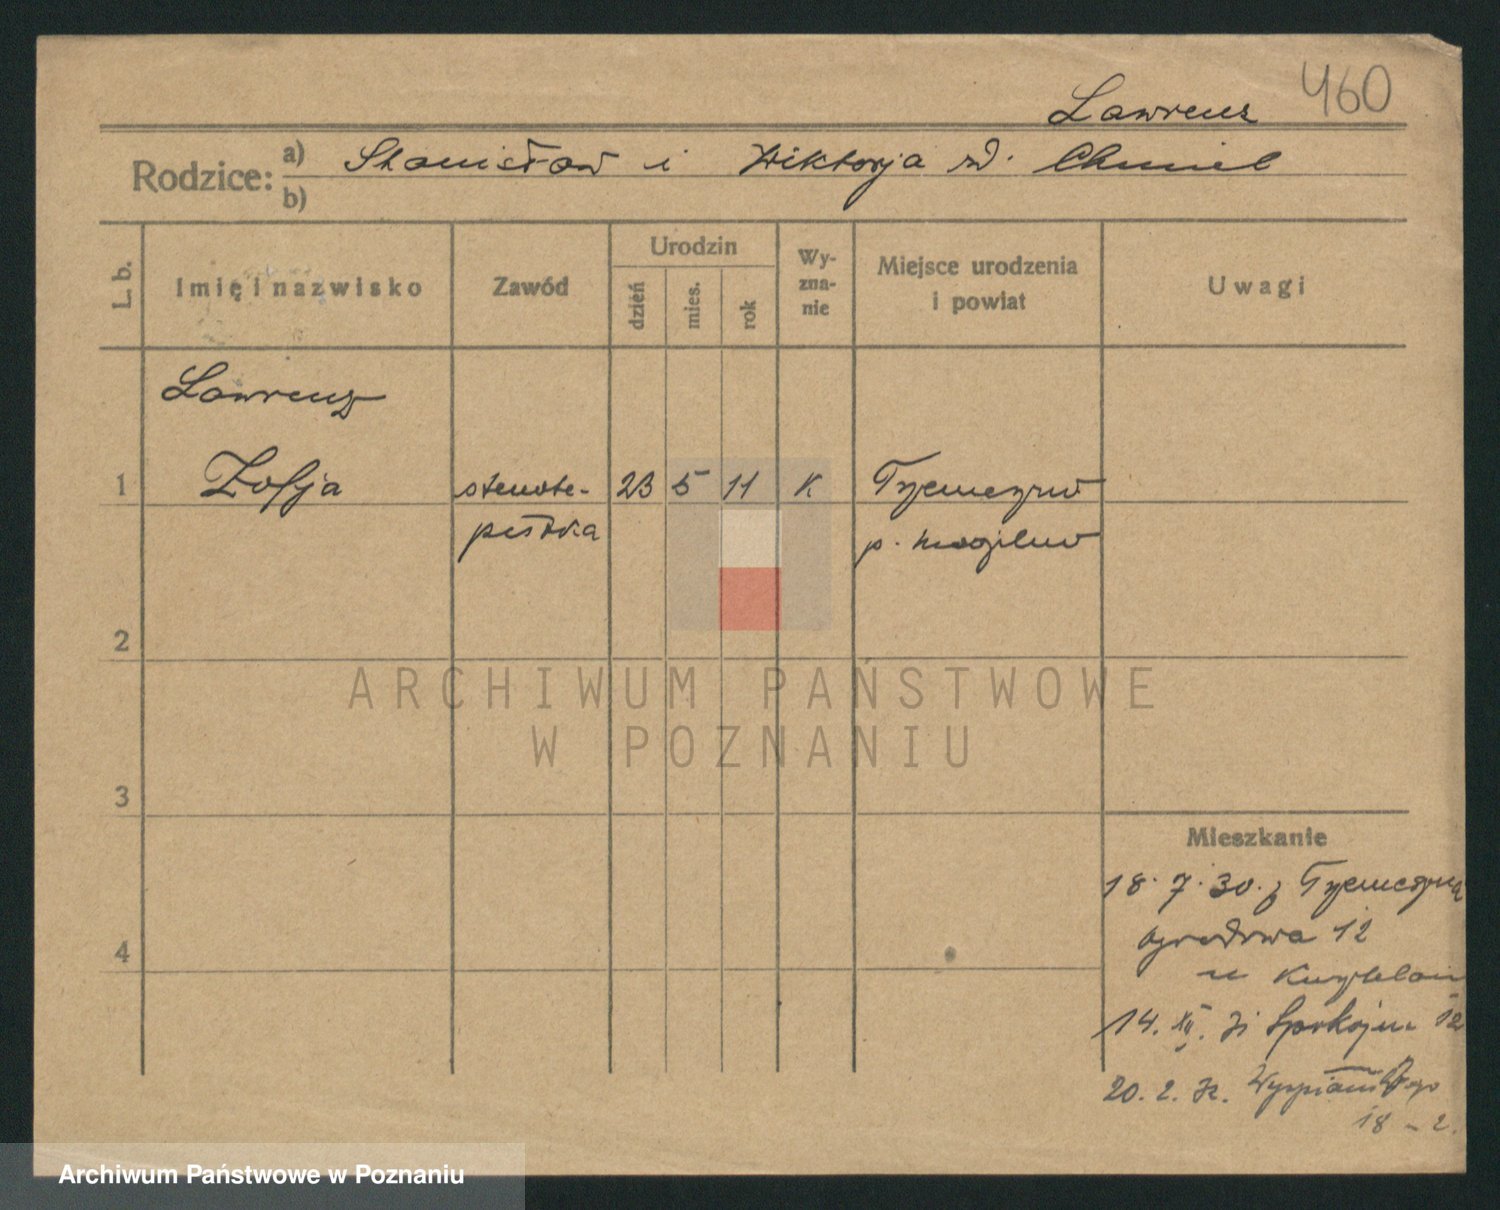 460
Lawrenz
Rodzice: a) Stanisław i Wiktorja zd. Chmiel
b)
L. b. Imię i nazwisko Zawód Urodzin dzień mies. rok Wy-zna-nie Miejsce urodzenia i powiat Uwagi
Lawrenz
1 Zofja stenoty- 23 5 11 K Trzemeszno
pistka p. Mogilno
2
3
4
Mieszkanie
18. 7. 30. z Trzemeszna
Ogrodowa 12
u
14. XII. 31 Spokojna 12
20. 2. 32. Wyspiańskiego
18 – 2.
ARCHIWUM PAŃSTWOWE
W POZNANIU
Archiwum Państwowe w Poznaniu